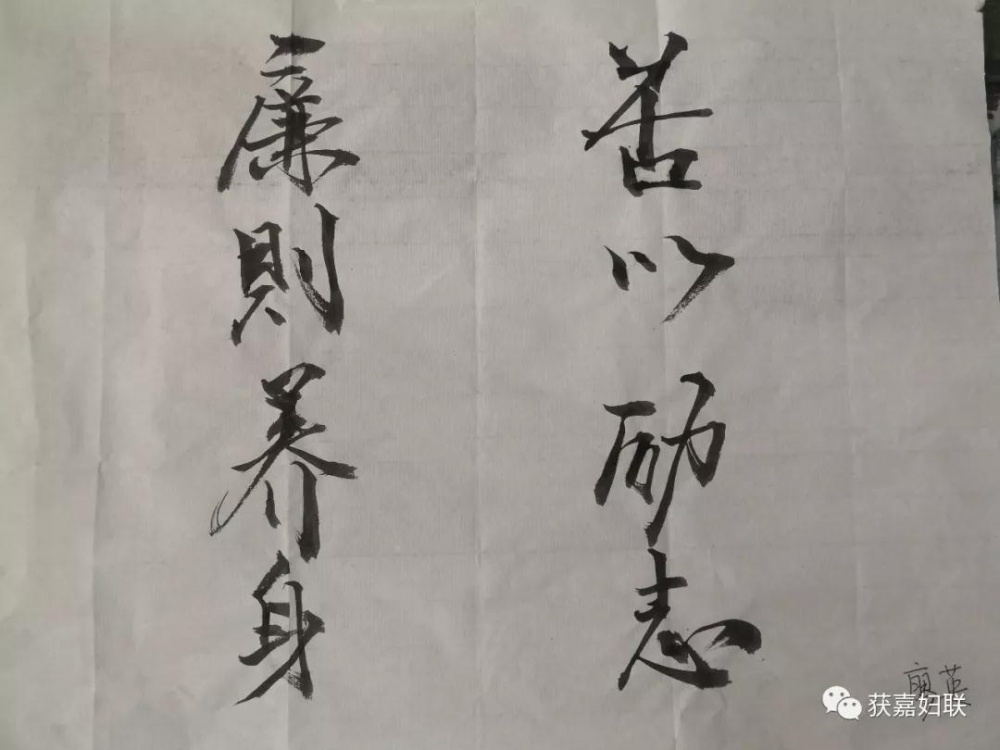 苦以励志
廉則养身
获嘉妇联